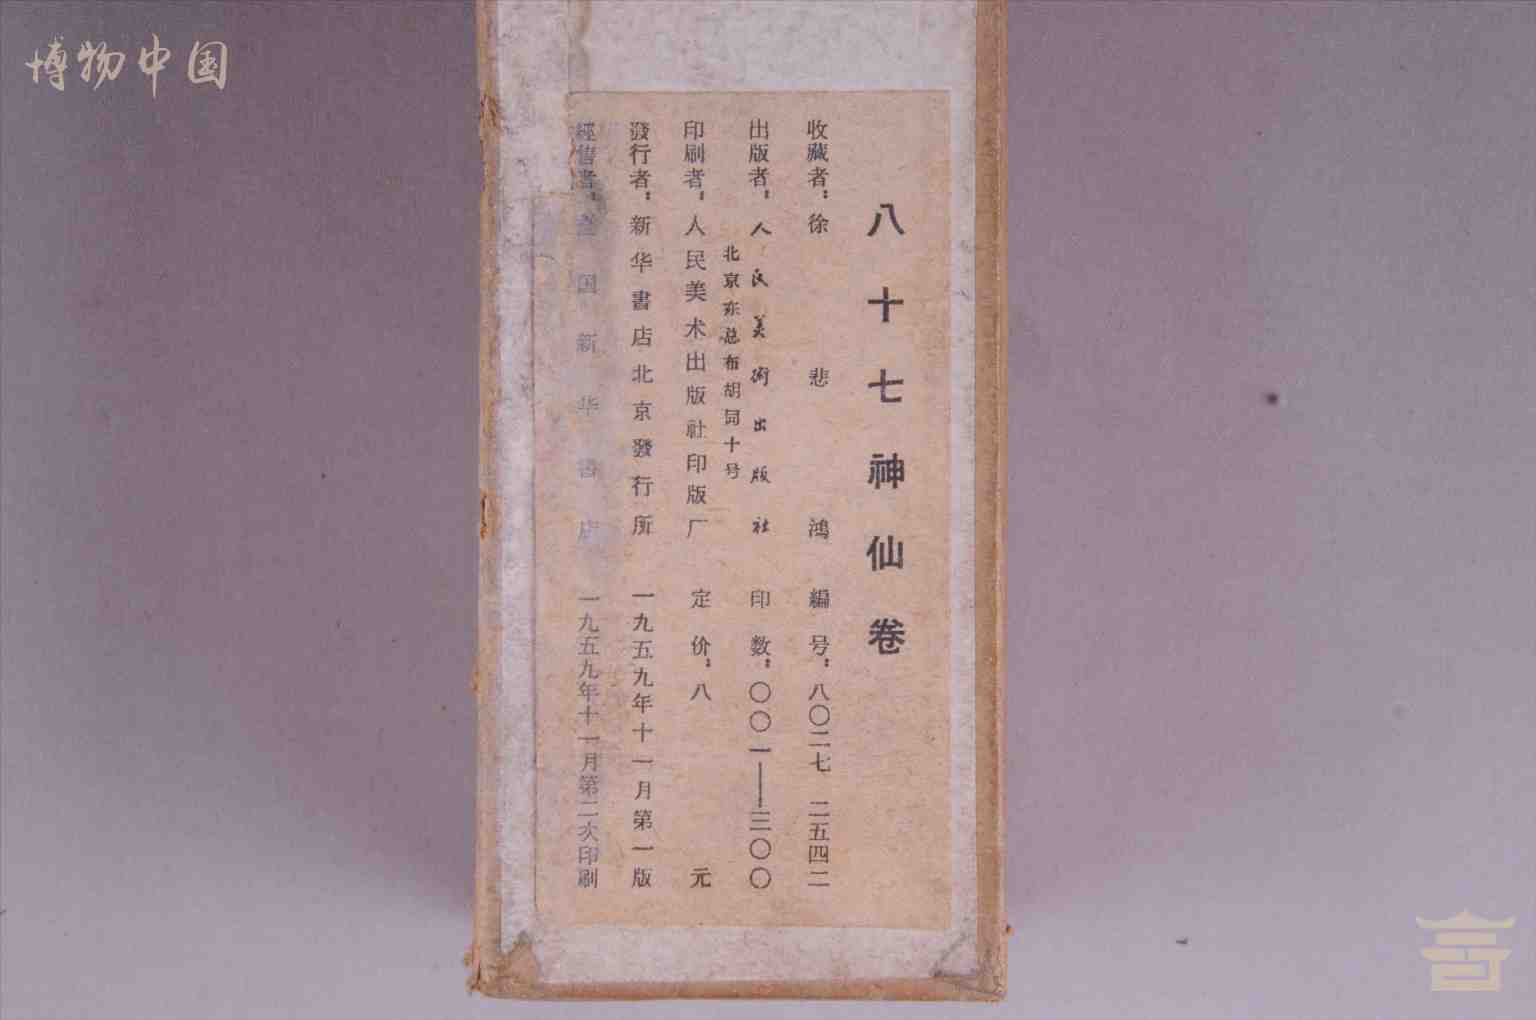 博物中国
八十七神仙卷
收藏者：徐悲鸿
編号：八〇二七 二五四二
出版者：人民美術出版社
北京东总布胡同十号
印数：〇〇一——三〇〇
印刷者：人民美术出版社印版厂
定价：八元
發行者：新华書店北京發行所
一九五九年十一月第一版
經售者：全国新华書店
一九五九年十一月第二次印刷